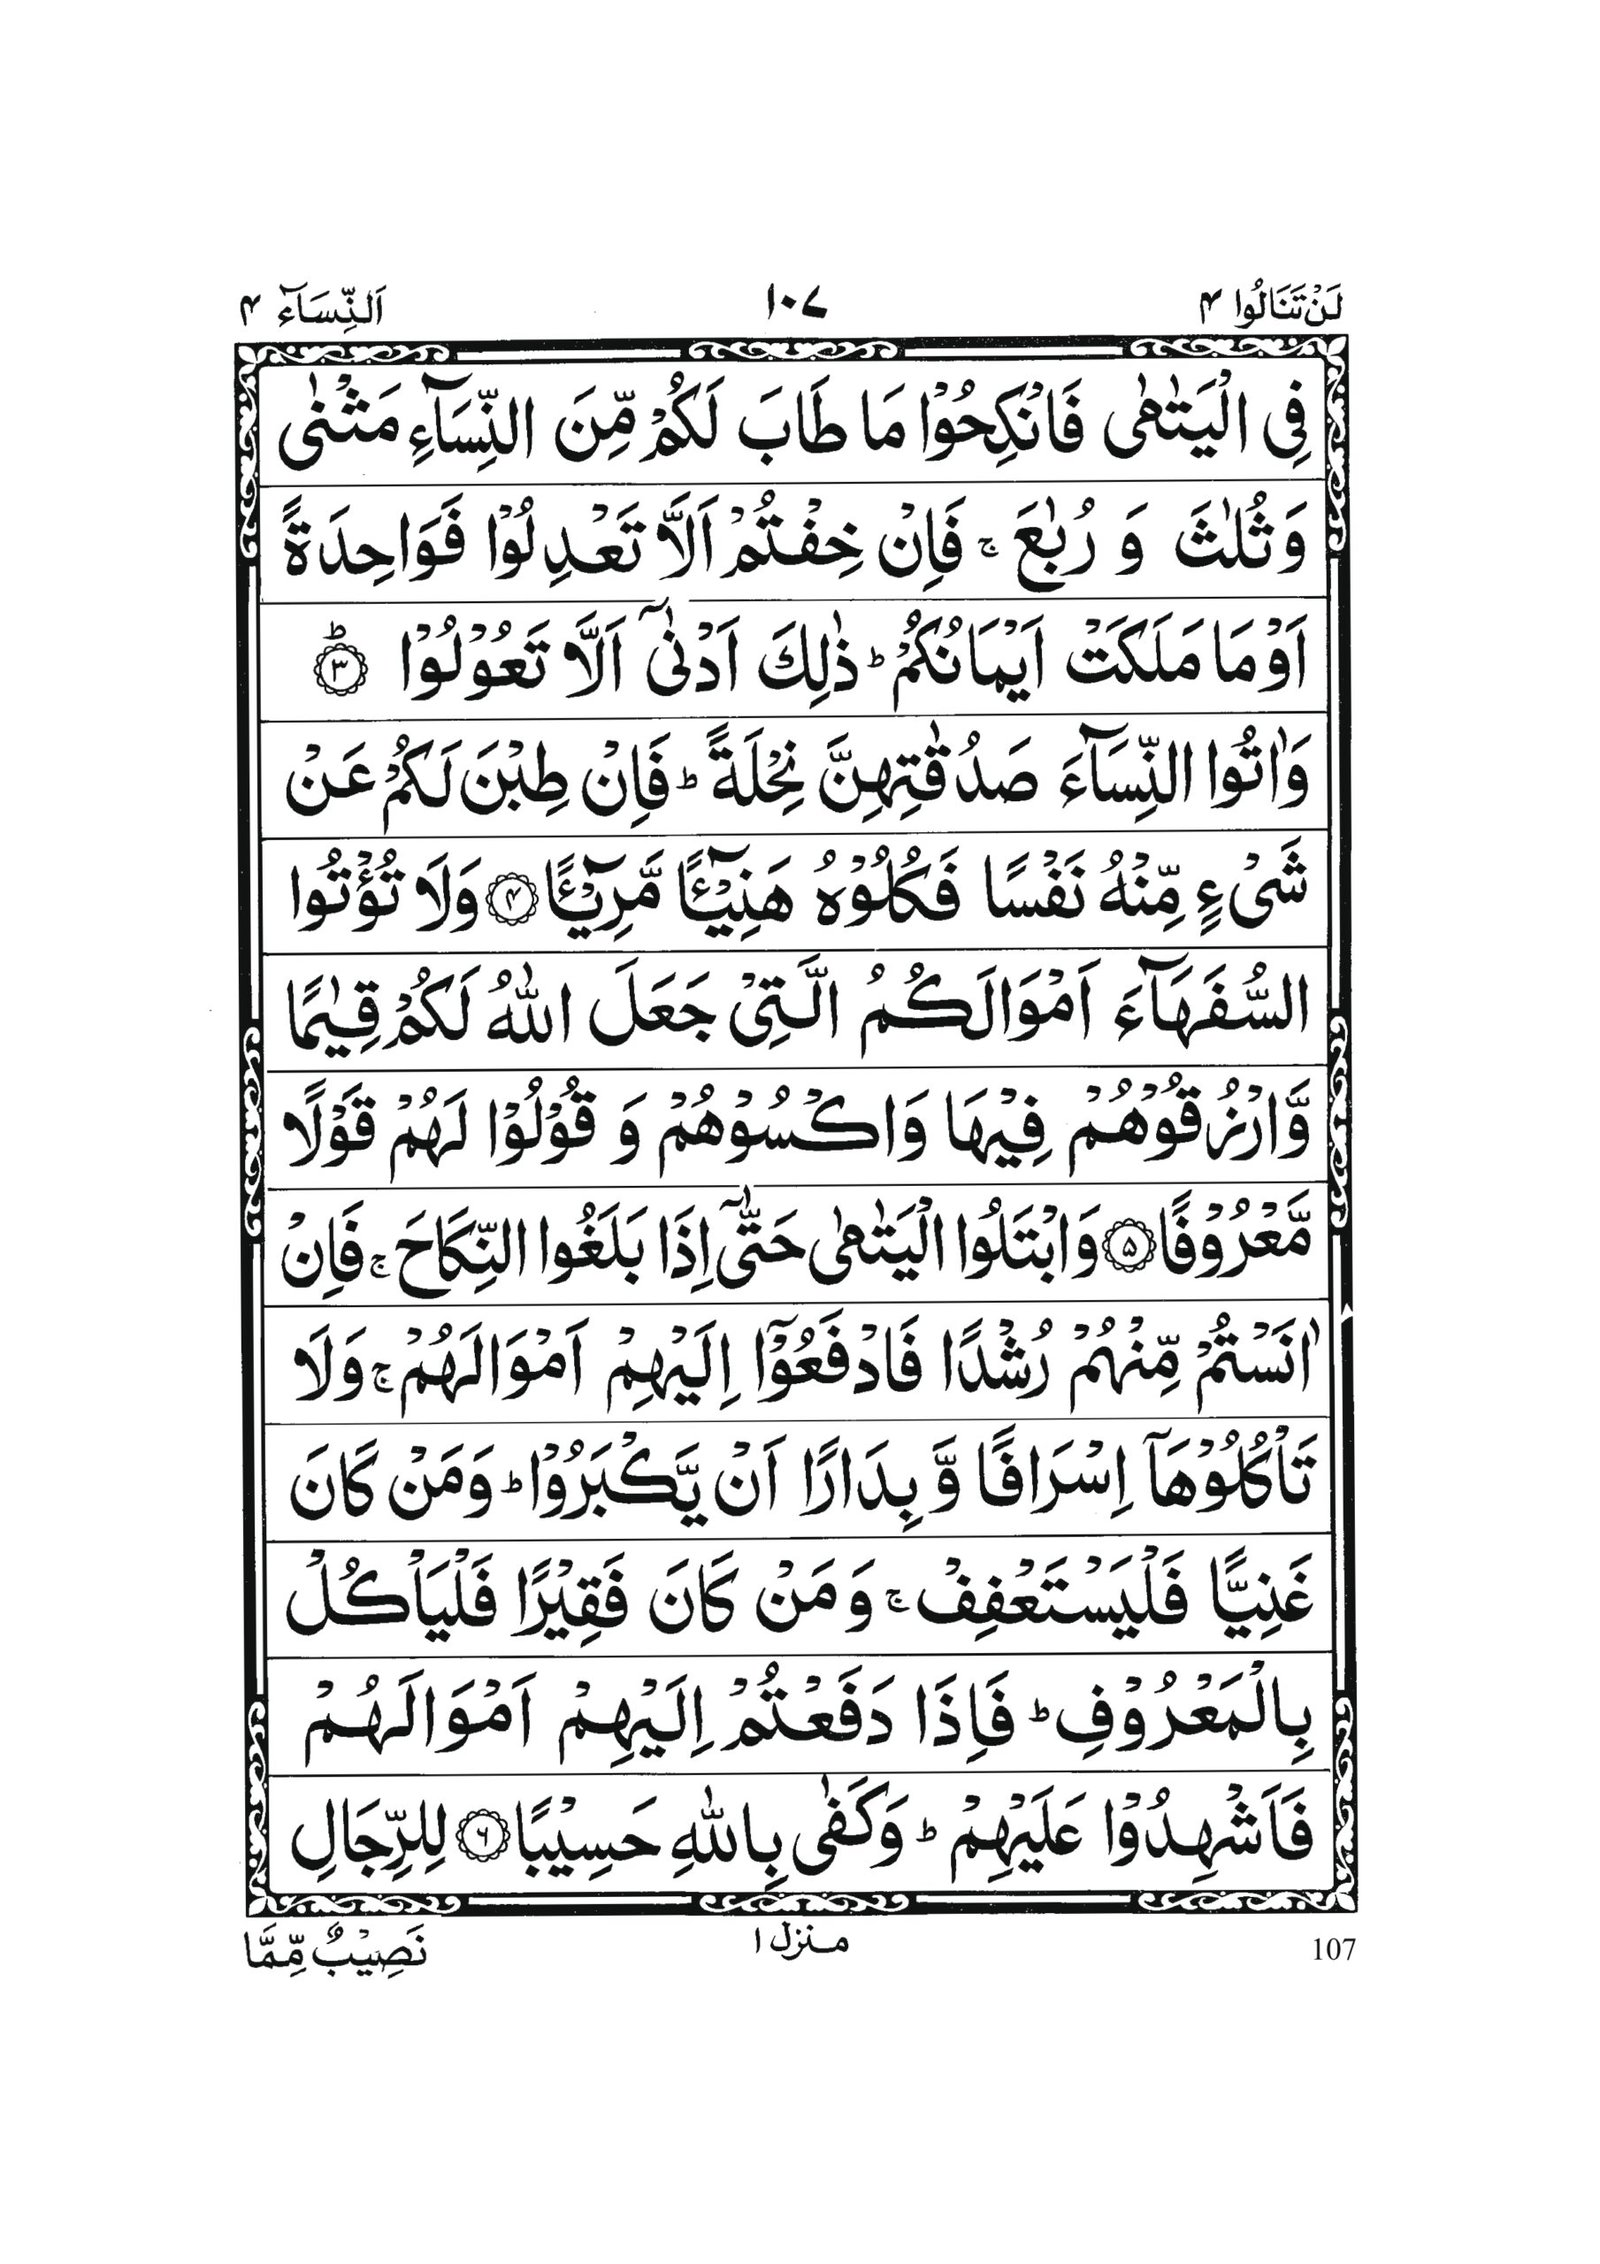 لَنۡ تَنَالُوا ۴
۱۰۷
اَلنِّسَآء ۴
فِی الۡیَتٰمٰی فَانۡکِحُوۡا مَا طَابَ لَکُمۡ مِّنَ النِّسَآءِ مَثۡنٰی
وَ ثُلٰثَ وَ رُبٰعَ ۚ فَاِنۡ خِفۡتُمۡ اَلَّا تَعۡدِلُوۡا فَوَاحِدَۃً
اَوۡ مَا مَلَکَتۡ اَیۡمَانُکُمۡ ؕ ذٰلِکَ اَدۡنٰۤی اَلَّا تَعُوۡلُوۡا ؕ﴿۳﴾
وَاٰتُوا النِّسَآءَ صَدُقٰتِہِنَّ نِحۡلَۃً ؕ فَاِنۡ طِبۡنَ لَکُمۡ عَنۡ
شَیۡءٍ مِّنۡہُ نَفۡسًا فَکُلُوۡہُ ہَنِیۡٓــًٔا مَّرِیۡٓــًٔا ﴿۴﴾ وَلَا تُؤۡتُوا
السُّفَہَآءَ اَمۡوَالَکُمُ الَّتِیۡ جَعَلَ اللّٰہُ لَکُمۡ قِیٰمًا
وَّارۡزُقُوۡہُمۡ فِیۡہَا وَاکۡسُوۡہُمۡ وَ قُوۡلُوۡا لَہُمۡ قَوۡلًا
مَّعۡرُوۡفًا ﴿۵﴾ وَابۡتَلُوا الۡیَتٰمٰی حَتّٰۤی اِذَا بَلَغُوا النِّکَاحَ ۚ فَاِنۡ
اٰنَسۡتُمۡ مِّنۡہُمۡ رُشۡدًا فَادۡفَعُوۡۤا اِلَیۡہِمۡ اَمۡوَالَہُمۡ ۚ وَلَا
تَاۡکُلُوۡہَاۤ اِسۡرَافًا وَّ بِدَارًا اَنۡ یَّکۡبَرُوۡا ؕ وَمَنۡ کَانَ
غَنِیًّا فَلۡیَسۡتَعۡفِفۡ ۚ وَ مَنۡ کَانَ فَقِیۡرًا فَلۡیَاۡکُلۡ
بِالۡمَعۡرُوۡفِ ؕ فَاِذَا دَفَعۡتُمۡ اِلَیۡہِمۡ اَمۡوَالَہُمۡ
فَاَشۡہِدُوۡا عَلَیۡہِمۡ ؕ وَکَفٰی بِاللّٰہِ حَسِیۡبًا ﴿۶﴾ لِلرِّجَالِ
107
منزل ۱
نَصِیۡبٌ مِّمَّا